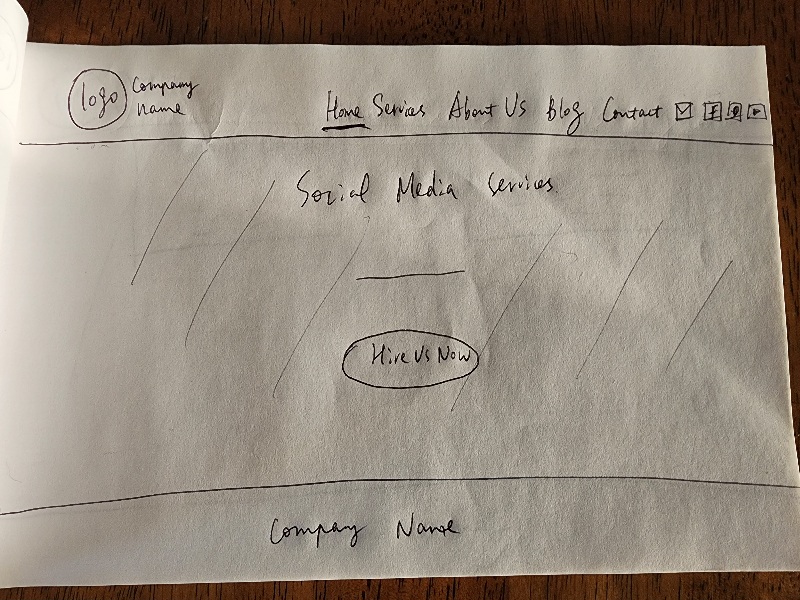 logo
Company
Name
Home Services About Us Blog Contact
Social Media Services
Hire Us Now
Company Name